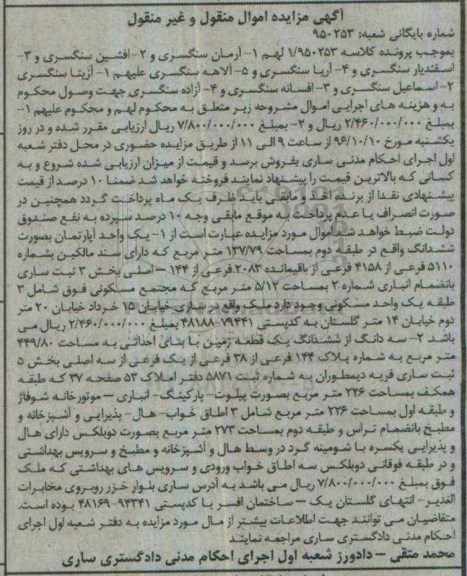 آگهی مزایده اموال منقول و غیر منقول
شماره بایگانی شعبه: ۹۵۰۲۵۳
بموجب پرونده کلاسه ۱/۹۵۰۲۵۳ لهم ۱- آرمان سنگسری و ۲- افشین سنگسری و ۳-
اسفندیار سنگسری و ۴- آریا سنگسری و ۵- آلاهه سنگسری علیهم ۱- آزیتا سنگسری
۲- اسماعیل سنگسری و ۳- افسانه سنگسری و ۴- آزاده سنگسری جهت وصول محکوم
به و هزینه های اجرایی اموال مشروحه زیر متعلق به محکوم لهم و محکوم علیهم ۱-
بمبلغ ۲/۴۶۰/۰۰۰/۰۰۰ ریال و ۲- بمبلغ ۷/۸۰۰/۰۰۰/۰۰۰ ریال ارزیابی مقرر شده و در روز
یکشنبه مورخ ۹۶/۱۰/۱۰ از ساعت ۹ الی ۱۱ از طریق مزایده حضوری در محل دفتر شعبه
اول اجرای احکام مدنی ساری بفروش برسد و قیمت از میزان ارزیابی شده شروع و به
کسانی که بالاترین قیمت را پیشنهاد نمایند فروخته خواهد شد ضمنا ۱۰ درصد از قیمت
پیشنهادی نقدا از برنده اخذ و مابقی باید ظرف یک ماه پرداخت گردد همچنین در
صورت انصراف یا عدم پرداخت به موقع مابقی وجه ۱۰ درصد سپرده به نفع صندوق
دولت ضبط خواهد شد اموال مورد مزایده عبارت است از ۱- یک واحد آپارتمان بصورت
ششدانگ واقع در طبقه دوم بمساحت ۱۳۷/۷۹ متر مربع که دارای سند مالکین بشماره
۵۱۱۰ فرعی از ۴۱۵۸ فرعی از باقیمانده ۲۰۸۳ فرعی از ۱۴۴ – اصلی بخش ۳ ثبت ساری
بانضمام انباری شماره ۲ بمساحت ۵/۱۲ متر مربع که مجتمع مسکونی فوق شامل ۳
طبقه یک واحد مسکونی وجود دارد ملک واقع در ساری خیابان ۱۵ خرداد خیابان ۲۰ متر
دوم خیابان ۱۴ متر گلستان به کدپستی ۷۹۴۴۱-۴۸۱۸۸ بمبلغ ۲/۴۶۰/۰۰۰/۰۰۰ ریال می
باشد ۲- سه دانگ از ششدانگ یک قطعه زمین با بنای احداثی به مساحت ۴۴۹/۸۰
متر مربع به شماره پلاک ۱۴۴ فرعی از ۳۸ فرعی از یک فرعی از سه اصلی بخش ۵
ثبت ساری قریه دیمطوران به شماره ثبت ۵۸۷۱ دفتر املاک ۵۳ صفحه ۳۷ که طبقه
همکف بمساحت ۲۲۶ متر مربع بصورت پیلوت- پارکینگ- انباری – موتورخانه شوفاژ
و طبقه اول بمساحت ۲۲۶ متر مربع شامل ۳ اطاق خواب- هال- پذیرایی و آشپزخانه و
مطبخ بانضمام تراس و طبقه دوم بمساحت ۲۷۳ متر مربع بصورت دوبلکس دارای هال
و پذیرایی یکسره با شومینه گرد در وسط هال و آشپزخانه و مطبخ و سرویس بهداشتی
و در طبقه فوقانی دوبلکس سه اطاق خواب ورودی و سرویس های بهداشتی که ملک
فوق بمبلغ ۷/۸۰۰/۰۰۰/۰۰۰ ریال می باشد به آدرس ساری بلوار خزر روبروی مخابرات
الغدیر- انتهای گلستان یک – ساختمان افسر با کدپستی ۹۴۳۴۱-۴۸۱۶۹ بوده است.
متقاضیان می توانند جهت اطلاعات بیشتر از مال مورد مزایده به دفتر شعبه اول اجرای
احکام مدنی دادگستری ساری مراجعه نمایند
محمد متقی – دادورز شعبه اول اجرای احکام مدنی دادگستری ساری